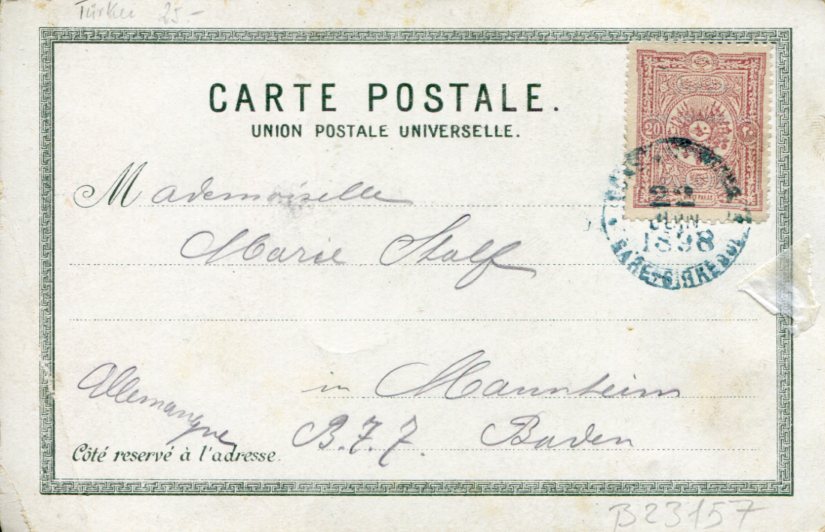 Türkei 25.-
CARTE POSTALE.
UNION POSTALE UNIVERSELLE.
20
22
JUIN
1898
Mademoiselle
Marie Stalf
in Mannheim
Allemangne
B.7.7. Baden
Côté reservé à l'adresse.
B23157